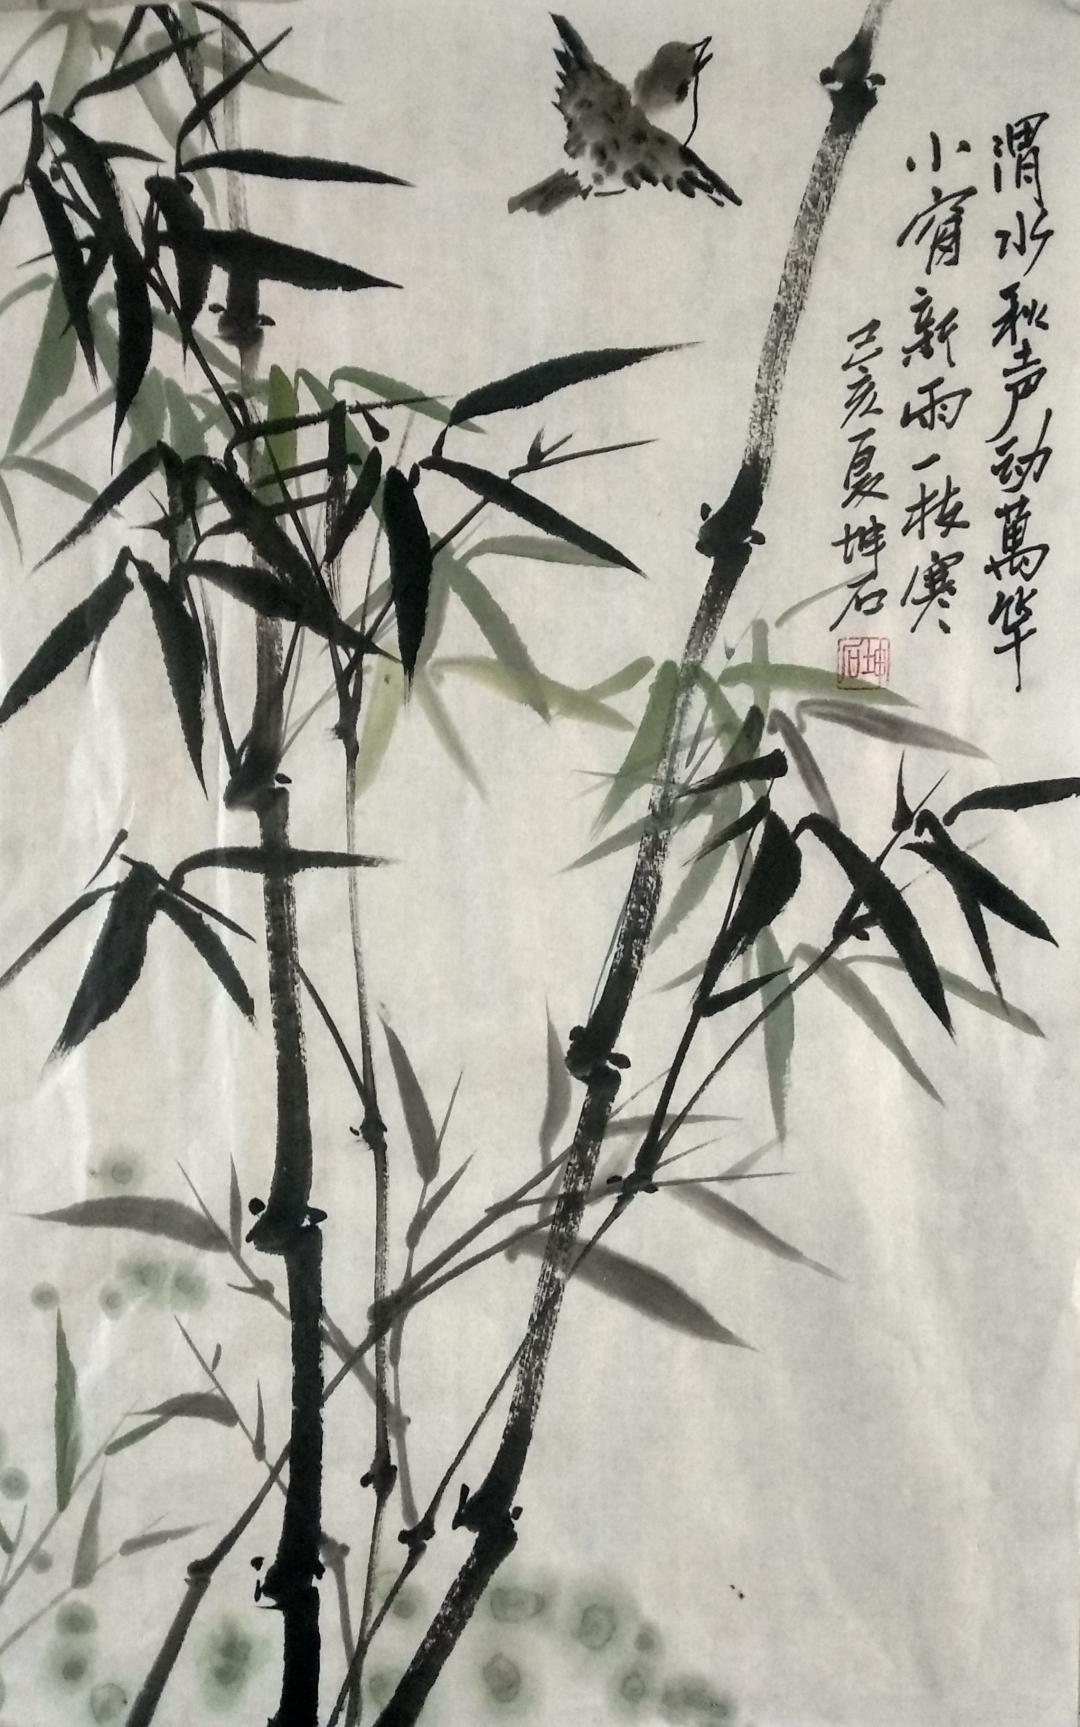 渭水秋声动萬竿
小窗新雨一枝寒
己亥夏坤石
坤石